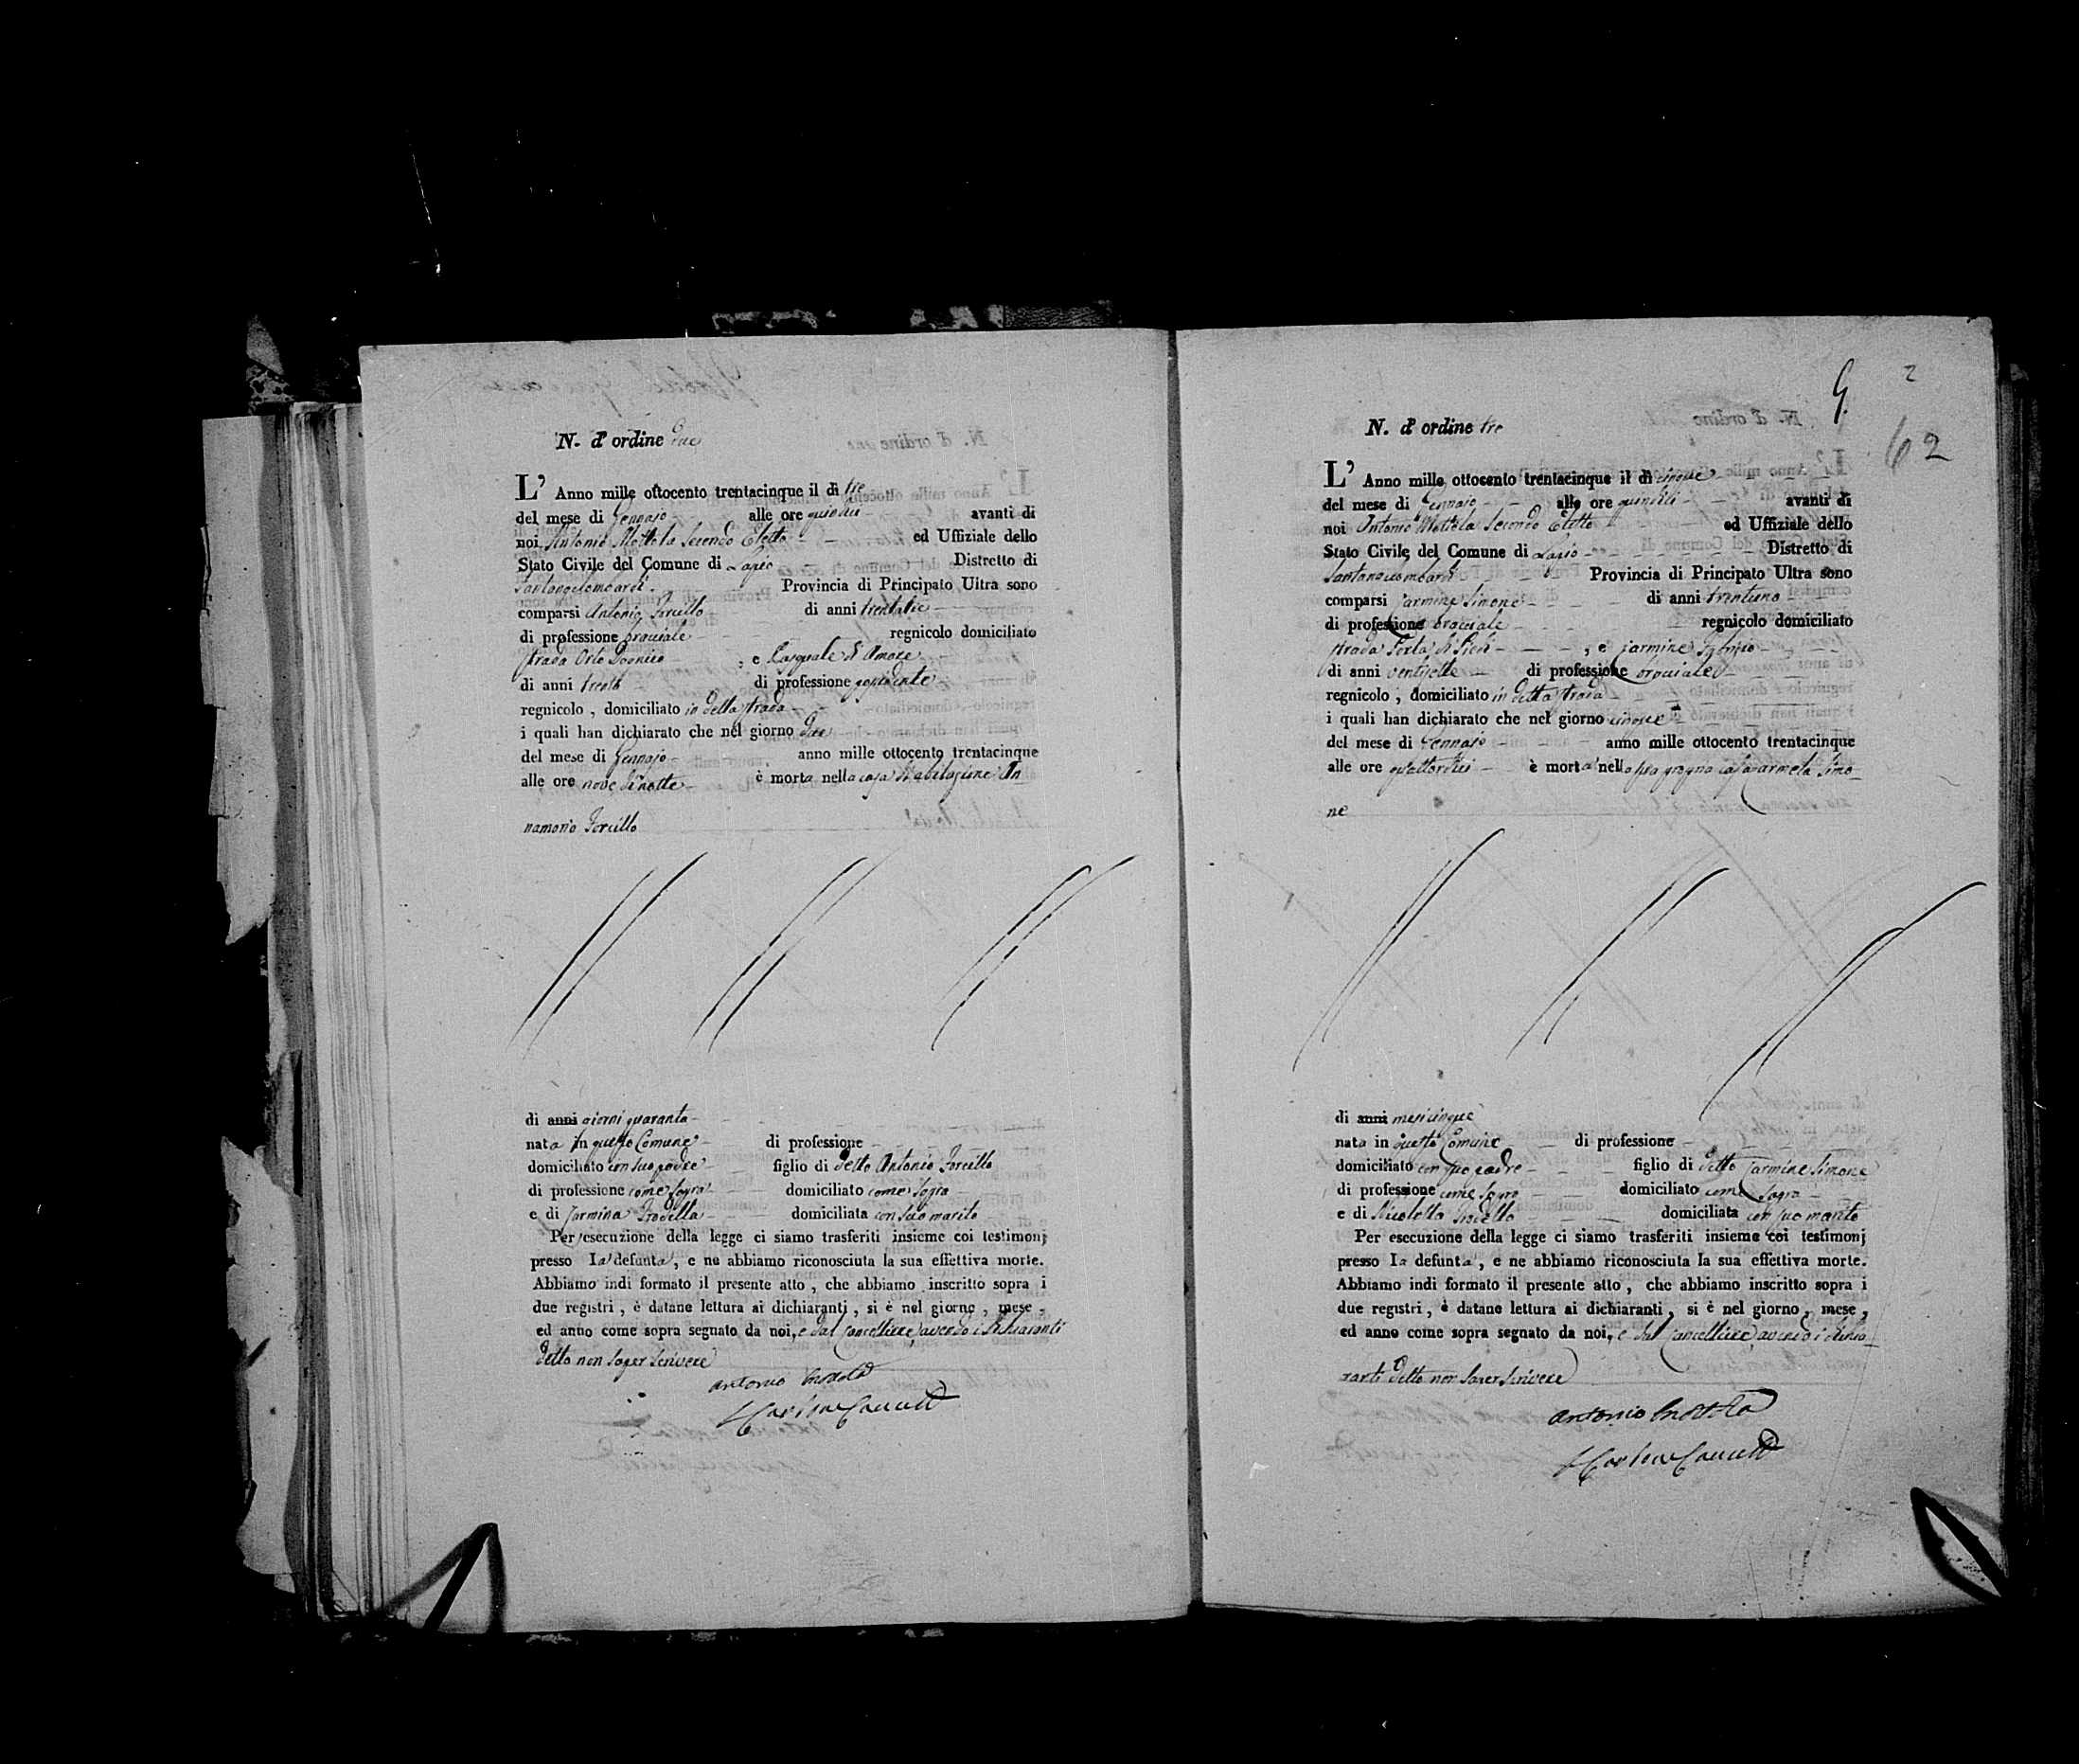 N. d' ordine due
L' Anno mille ottocento trentacinque il dì tre
del mese di Gennajo alle ore quindici avanti di
noi Antonio Mottola Secondo Eletto ed Uffiziale dello
Stato Civile del Comune di Lapio Distretto di
Santangelombardi Provincia di Principato Ultra sono
comparsi Antonio Forcillo di anni trentatre
di professione bracciale regnicolo domiciliato
strada Orto , e Pasquale di Amore
di anni trenta di professione
regnicolo , domiciliato in detta strada
i quali han dichiarato che nel giorno due
del mese di Gennajo anno mille ottocento trentacinque
alle ore nove di notte è morta nella casa d'abitazione An
namaria Forcillo
di anni giorni quaranta
nata in questo Comune di professione
domiciliato con suo padre figlio di detto Antonio Forcillo
di professione come sopra domiciliato come sopra
e di Carmina Trodella domiciliata con suo marito
Per esecuzione della legge ci siamo trasferiti insieme coi testimonj
presso la defunta , e ne abbiamo riconosciuta la sua effettiva morte.
Abbiamo indi formato il presente atto , che abbiamo inscritto sopra i
due registri , è datane lettura ai dichiaranti , si è nel giorno , mese ,
ed anno come sopra segnato da noi, e dal Cancelliere avendo i dichiaranti
detto non saper scrivere
Antonio Mottola
G.
2
62
N. d' ordine tre
L' Anno mille ottocento trentacinque il dì cinque
del mese di Gennajo alle ore quindici avanti di
noi Antonio Mottola Secondo Eletto ed Uffiziale dello
Stato Civile del Comune di Lapio Distretto di
Santangelombardi Provincia di Principato Ultra sono
comparsi Carmine Simone di anni trentuno
di professione bracciale regnicolo domiciliato
strada Porta di Piedi , e Carmine
di anni ventisette di professione bracciale
regnicolo , domiciliato in detta strada
i quali han dichiarato che nel giorno cinque
del mese di Gennajo anno mille ottocento trentacinque
alle ore quattordici è morta nella sua propria casa Carmela Simo
ne
di anni mesi cinque
nata in questo Comune di professione
domiciliato con suo padre figlio di detto Carmine Simone
di professione come sopra domiciliato come sopra
e di Nicoletta Trodella domiciliata con suo marito
Per esecuzione della legge ci siamo trasferiti insieme coi testimonj
presso la defunta , e ne abbiamo riconosciuta la sua effettiva morte.
Abbiamo indi formato il presente atto , che abbiamo inscritto sopra i
due registri , è datane lettura ai dichiaranti , si è nel giorno , mese ,
ed anno come sopra segnato da noi, e dal Cancelliere avendo i dichia
ranti detto non saper scrivere
Antonio Mottola